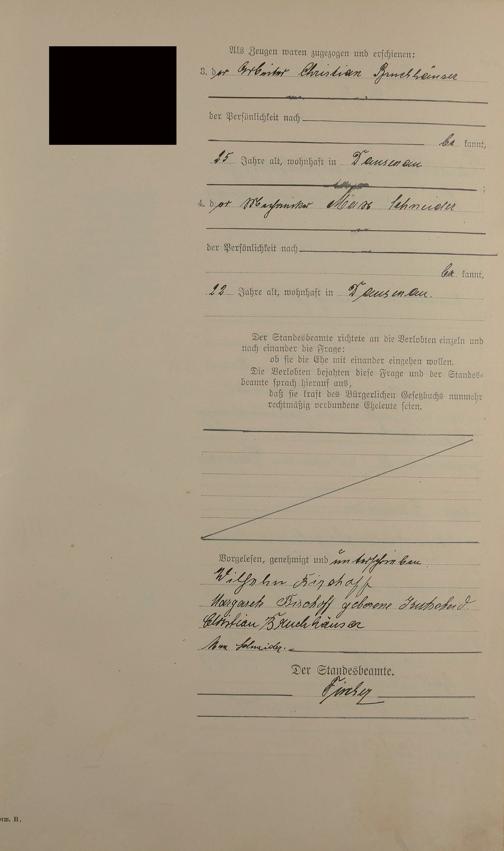 Als Zeugen waren zugezogen und erschienen:
3. der Arbeiter Christian Bruchhäuser
der Persönlichkeit nach
be kannt,
25 Jahre alt, wohnhaft in Dausenau
4. der Mechaniker Max Schneider
der Persönlichkeit nach
be kannt,
22 Jahre alt, wohnhaft in Dausenau.
Der Standesbeamte richtete an die Verlobten einzeln und
nach einander die Frage:
ob sie die Ehe mit einander eingehen wollen.
Die Verlobten bejahten diese Frage und der Standes-
beamte sprach hierauf aus,
daß sie kraft des Bürgerlichen Gesetzbuchs nunmehr
rechtmäßig verbundene Eheleute seien.
Vorgelesen, genehmigt und unterschrieben
Wilhelm Bischoff
Margarete Bischoff geborene
Christian Bruchhäuser
Max Schneider.
Der Standesbeamte.
Fischer